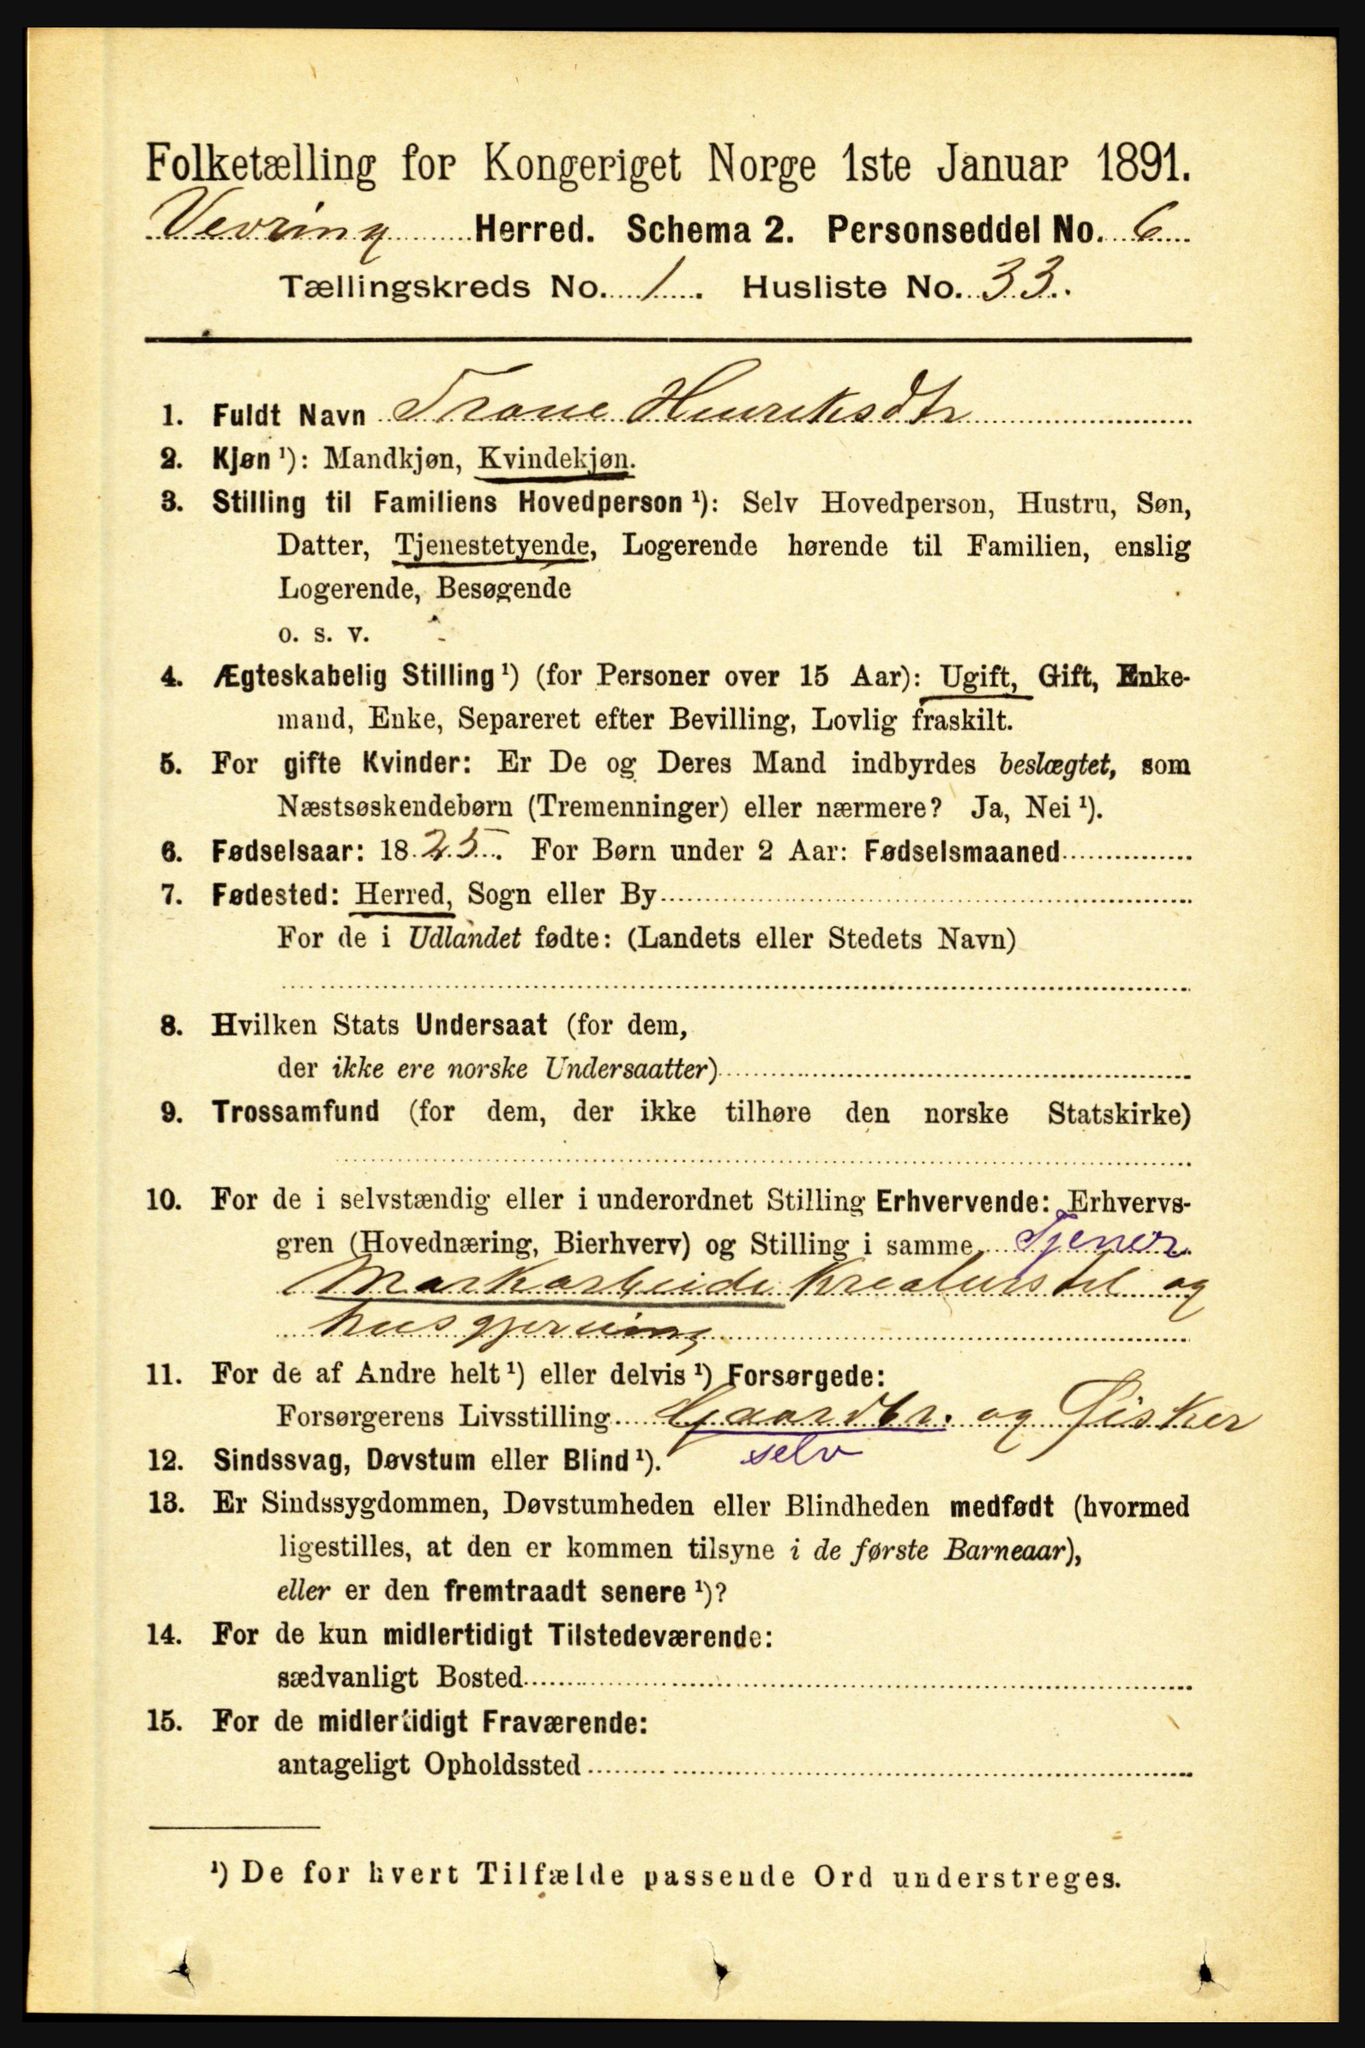 Folketælling for Kongeriget Norge 1ste Januar 1891.
Vevring Herred. Schema 2. Personseddel No. 6
Tællingskreds No. 1. Husliste No. 33.
1. Fuldt Navn Trone Henriksdtr
2. Kjøn ¹): Mandkjøn, Kvindekjøn.
3. Stilling til Familiens Hovedperson ¹): Selv Hovedperson, Hustru, Søn,
Datter, Tjenestetyende, Logerende hørende til Familien, enslig
Logerende, Besøgende
o. s. v.
4. Ægteskabelig Stilling ¹) (for Personer over 15 Aar): Ugift, Gift, Enke-
mand, Enke, Separeret efter Bevilling, Lovlig fraskilt.
5. For gifte Kvinder: Er De og Deres Mand indbyrdes beslægtet, som
Næstsøskendebørn (Tremenninger) eller nærmere? Ja, Nei ¹).
6. Fødselsaar: 1825. For Børn under 2 Aar: Fødselsmaaned
7. Fødested: Herred, Sogn eller By
For de i Udlandet fødte: (Landets eller Stedets Navn)
8. Hvilken Stats Undersaat (for dem,
der ikke ere norske Undersaatter)
9. Trossamfund (for dem, der ikke tilhøre den norske Statskirke)
10. For de i selvstændig eller i underordnet Stilling Erhvervende: Erhvervs-
gren (Hovednæring, Bierhverv) og Stilling i samme Tjener
Markarbeide Kreaturstel og
husgjerning
11. For de af Andre helt ¹) eller delvis ¹) Forsørgede:
Forsørgerens Livsstilling Gaardbr. og Fisker
selv
12. Sindssvag, Døvstum eller Blind ¹).
13. Er Sindssygdommen, Døvstumheden eller Blindheden medfødt (hvormed
ligestilles, at den er kommen tilsyne i de første Barneaar),
eller er den fremtraadt senere ¹)?
14. For de kun midlertidigt Tilstedeværende:
sædvanligt Bosted
15. For de midlertidigt Fraværende:
antageligt Opholdssted
¹) De for hvert Tilfælde passende Ord understreges.